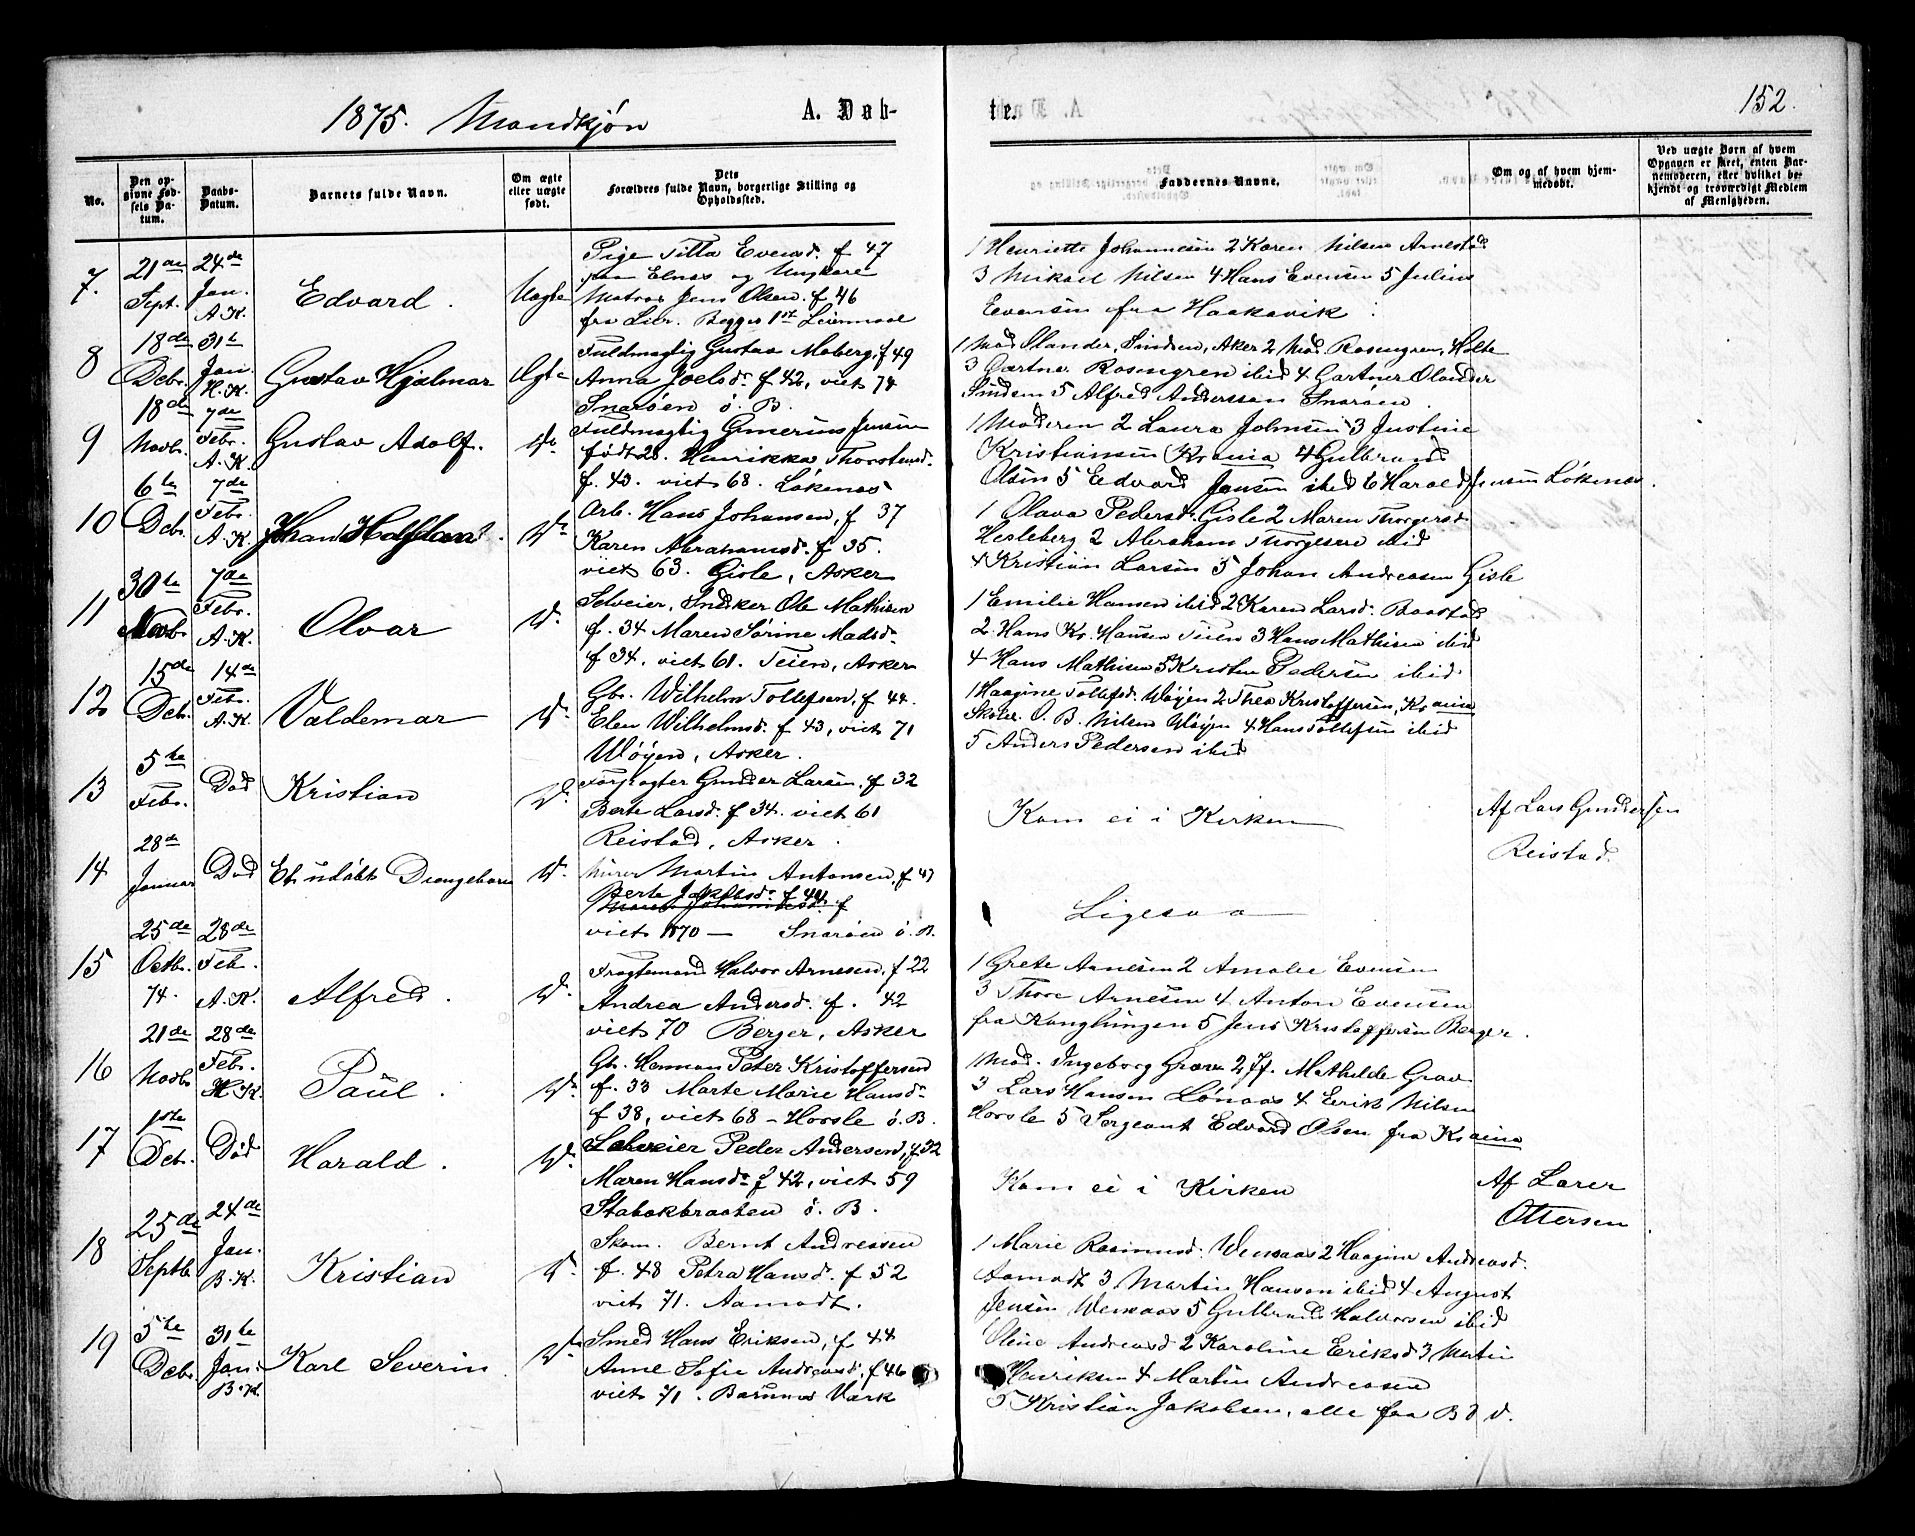 1875. Mandkjøn
A. Døb-
te.
152.
No.
Den opgivne Fødsels Datum.
Daabs-Datum.
Barnets fulde Navn.
Om ægte eller uægte født.
Dets Forældres fulde Navn, borgerlige Stilling og Opholdssted.
Faddernes Navne.
Om og af hvem hjemmedøbt.
Ved uægte Børn af hvem Opgaven er skeet, enten Barnemoderen, eller hvilket bekjendt og troværdigt Medlem af Menigheden.
7. 21de Sept. 24de Jan. A.K. Edvard. Uægte
Pige Titta Evensd. f 47
paa Elnes og Ungkarl
Matros Jens Olsen. f 46
fra Lier. Begges 1ste Leiermaal
1 Henriette Johannesen 2 Karen Nilsen Arnestad
3 Mikael Nilsen 4 Hans Evensen 5 Julius
Evensen fra Haakavik
8 18de Debr. 31te Jan. H.K. Gustav Hjalmar Ægte
Fuldmægtig Gustav Moberg, f 49
Anna Joelsdr. f 42, viet 74
Snarøen ø. B.
1 Mad Olander, Sindsen, Aker 2 Mad. Rosengren, Holte
3 Gartner Rosengren ibid 4 Gartner Olander
Sindsen 5 Alfred Anderssen Snarøen.
9 18de Novbr. 7de Febr. A.K. Gustav Adolf. Do
Fuldmægtig Gunerius Jensen
født 28. Henrikka Thorstensd.
f. 43. viet 68. Løkenes
1 Moderen 2 Laura Johnsen 3 Justine
Kristiansen Krania 4 Gulbrand
Olsen 5 Edvard Jensen ibid 6 Harald Jensen Løkenes.
10 6te Debr. 7de Febr. A.K. Johan Halfdan. Do
Arb. Hans Johansen, f 37
Karen Abrahamsd. f 35.
viet 63. Gisle, Asker
1 Olava Pedersd. Gisle 2 Maren Thorgersd.
Hesleberg 2 Abraham Thorgersen ibid
4 Kristian Larsen 5 Johan Andreasen Gisle
11 30te Novb. 7de Febr. A.K. Olvar Do.
Selveier, Snedker Ole Mathisen
f. 34 Maren Sørine Madsdr.
f 34. viet 61. Teien, Asker
1 Emilie Hansen ibid 2 Karen Larsd. Baastad
2. Hans Kr. Hansen Teien 3 Hans Mathisen ibid
4 Hans Mathisen 5 Kristen Pedersen ibid.
12 15de Debr. 14de Febr. A.K. Valdemar Do.
Gbr. Wilhelm Tollefsen, f 44.
Elen Wilhelmsd. f 43, viet 71
Wøyen, Asker.
1 Haagine Tollefsd. Wøyen 2 Thea Kristoffersen, Krania
Skoler. O. B. Nilsen Wøyen 4 Hans Tollefsen ibid
5 Anders Pedersen ibid
13 5te Febr. Død Kristian Do.
Forpagter Gunder Larsen. f 32
Berte Larsd. f 34. viet 61
Reistad, Asker.
Kom ei i Kirken
Af Lars Gundersen
Reistad.
14 28de Januar Død Et udøbt Drengebarn Do.
Murer Martin Antonsen, f 47
Berte Jakobsdr. f 44
viet 1870 — Snarøen ø. B.
Ligesaa
15 25de Octbr. 74. 28de Feb. A.K. Alfred. Do.
Fragtemand Halvor Arnesen, f 22
Andrea Andersd. f. 42
viet 70 Berger, Asker
1 Grete Arnesen 2 Amalie Evensen
3 Thore Arnesen 4 Anton Evensen
fra Konglungen 5 Jens Kristoffersen Berger.
16 21de Novbr. 28de Febr. H.K. Paul. Do.
Gbr. Herman Peter Kristoffersen
f. 33 Marte Marie Hansdr.
f 38, viet 68 - Horsle ø. B.
1 Mad. Ingeborg Grav 2 Jf. Mathilde Grav
3 Lars Hansen Lønaas 4 Eerik Nilsen
Horsle 5 Sergeant Edvard Olsen fra Krania
17 1ste Debr. Død Harald. Do.
Selveier Peder Andersen, f 32
Maren Hansdr. f 42, viet 59
Stabækbraaten ø. B.
Kom ei i Kirken
Af Larer
Ottersen.
18 25de Septb. 24de Jan. B.K. Kristian Do.
Skom. Bernt Andreasen
f. 48 Petra Hansd. f 52
viet 71. Aamodt.
1 Marie Rasmusd. Wensaas 2 Haagine Andreasd.
Aamodt 3 Martin Hansen ibid 4 August
Jensen Wensaas 5 Gulbrand Halvorsen ibid
19 5te Debr. 31te Jan. B.K. Karl Severin Do.
Smed Hans Eriksen, f 44
Anne Sofie Andreasd. f 46
viet 71. Bærums Værk
Oline Andreasd 2 Karoline Eriksd 3 Martin
Henriksen 4 Martin Andreasen
5 Kristian Jakobsen, alle fra B. V.